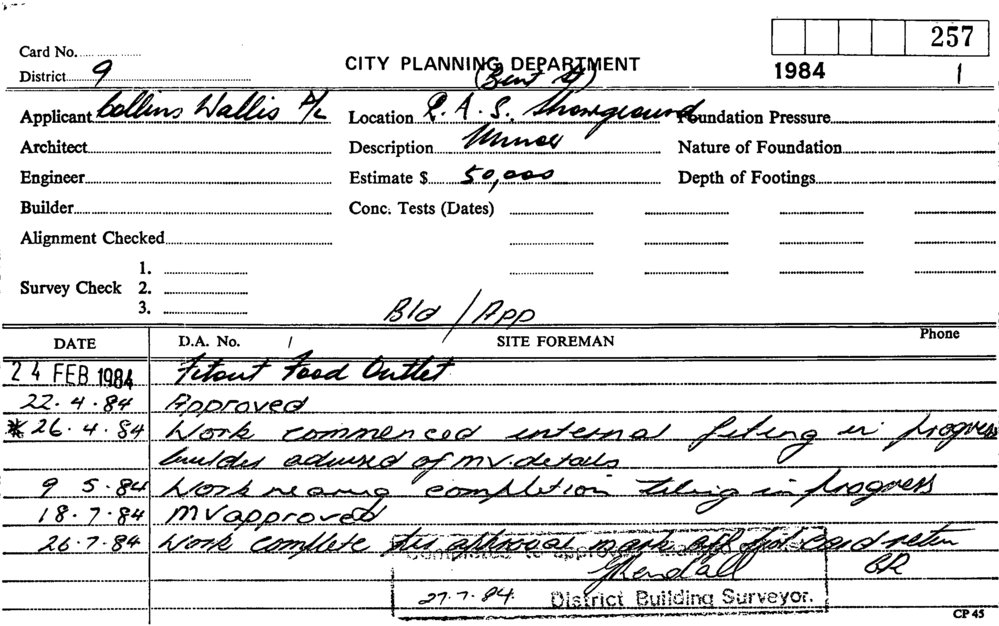 257
Card No.
CITY PLANNING DEPARTMENT
1984 1
District 9
(Bent St)
Applicant Collins Wallis P/L Location R.A.S. Showground Foundation Pressure
Architect Description Minor Nature of Foundation
Engineer Estimate $ 50,000 Depth of Footings
Builder Conc. Tests (Dates)
Alignment Checked
1.
Survey Check 2.
3.
Bld / App
DATE D.A. No. / SITE FOREMAN Phone
24 FEB 1984 Fitout Food Outlet
22.4.84 Approved
*26.4.84 Work commenced internal fiting in progress
builder advised of MV. details
9 5.84 Work nearing completion tiling in progress
18.7.84 MV approved
26.7.84 Work complete per approval mark off Card
27.7.84. District Building Surveyor.
CP 45